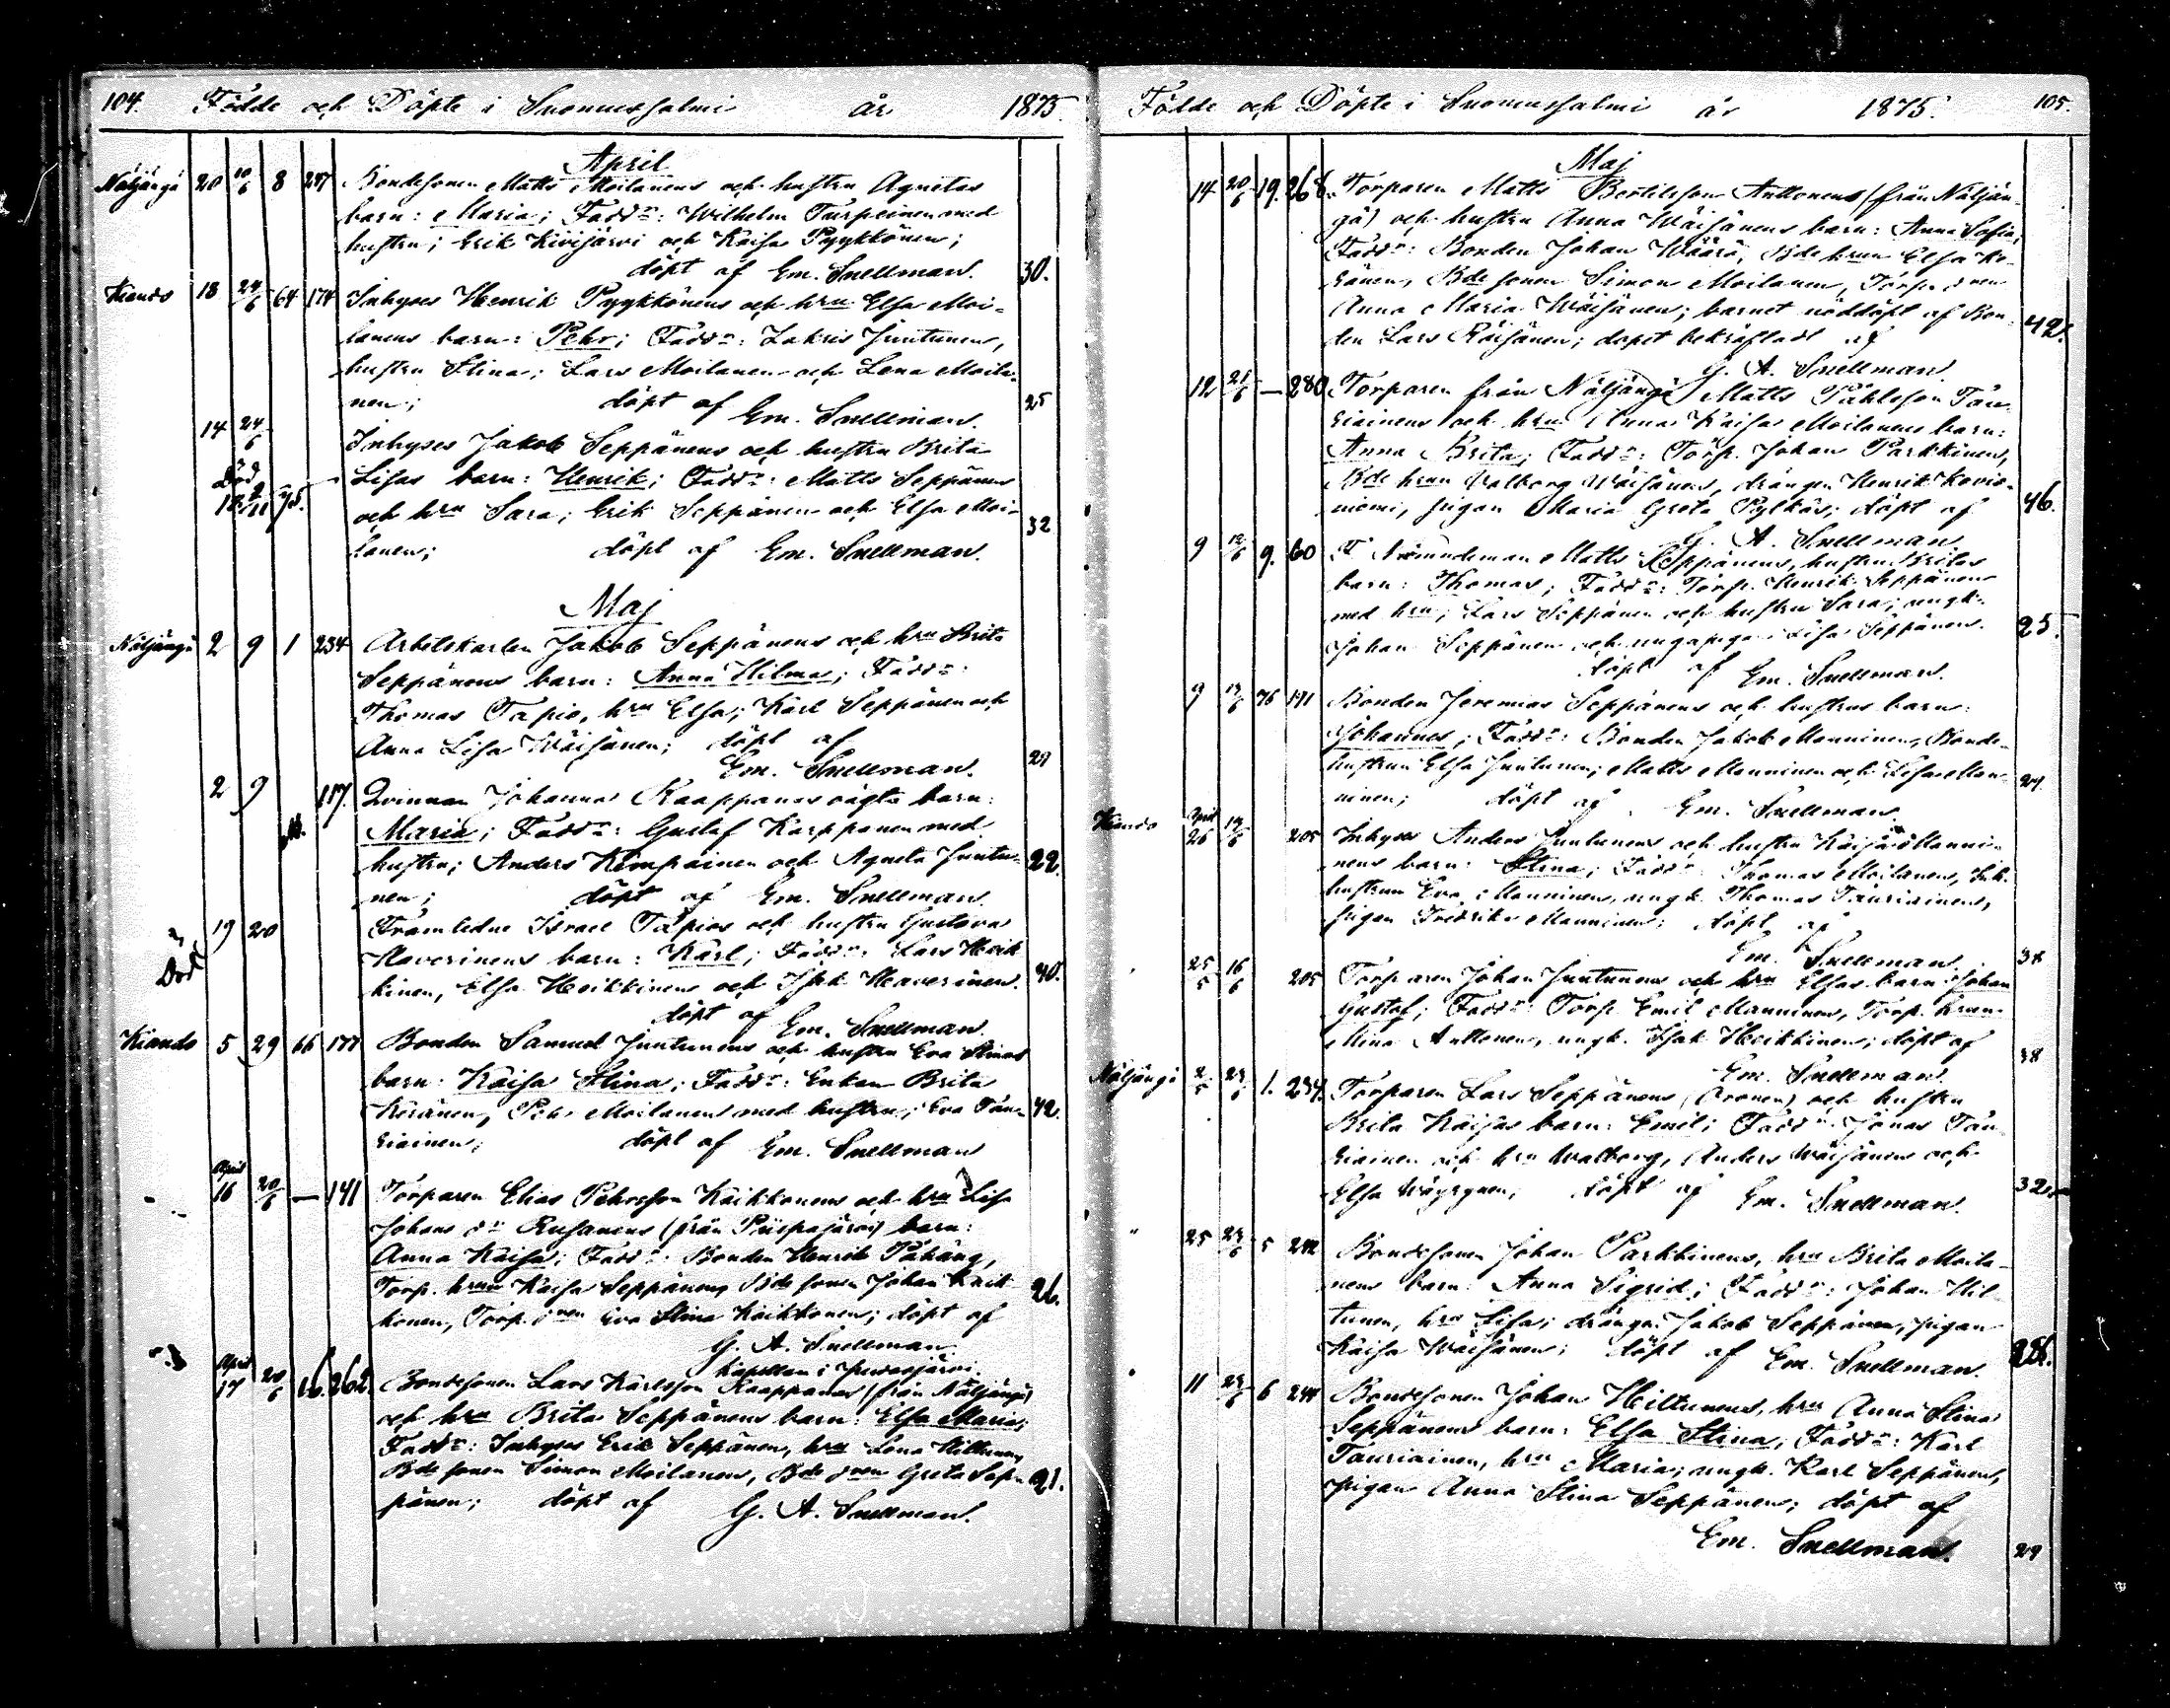 104. Födde och Döpte i Suomussalmi år 1875.
April
Näljängä 20 10/6 8 247 Bondesonen Matts Moilanens och hustru Agnetas
barn: Maria; Fadd:r: Wilhelm Turpeinen med
hustru; Erik Kivijärvi och Kaisa Pyykkönen;
döpt af Em. Snellman. 30.
Kiando 18 24/6 64 174 Inhyses Henrik Pyykkönens och hru Elsa Moi-
lanens barn: Pehr; Fadd:r: Zakris Juntunen,
hustru Stina; Lars Moilanen och Lena Moila-
nen; döpt af Em. Snellman. 25
14 24/6 Inhyses Jakob Seppänens och hustru Brita
Död Lisas barn: Henrik; Fadd:r: Matts Seppänen
och hru Sara; Erik Seppänen och Elsa Moi-
lanen; döpt af Em. Snellman. 32
Maj
Näljängä 2 9 1 234 Arbetskarlen Jakob Seppänens och hru Brita
Seppänens barn: Anna Hilma; Fadd:r:
Thomas Tapio, hru Elsa; Karl Seppänen och
Anna Lisa Wäisänen; döpt af
Em. Snellman. 29
2 9 117. Qvinnan Johanna Kaappanas oägta barn:
Maria; Fadd:r: Gustaf Karppanen med
hustru; Anders Kemppainen och Agneta Juntu- 22.
nen; döpt af Em. Snellman.
19 20 Framledne Israel Tapios och hustru Gustava
Död Haverinens barn: Karl; Fadd:r: Lars Heik
kinen, Elsa Heikkinen och Isak Haverinen. 40.
döpt af Em. Snellman.
Kiando 5 29 66 177 Bonden Samuel Juntunens och hustru Eva Stinas
barn: Kaisa Stina; Fadd:r: Enkan Brita
Keränen, Pehr Moilanen med hustru; Eva Tau- 42.
riainen; döpt af Em. Snellman
April
16 20/6 — 141 Torparen Elias Pehrsson Kaikkonens och hru Lisa
Johans d:r Rusanens (från Piispajärvi) barn:
Anna Kaisa; Fadd:r: Bonden Henrik
Torp. hrun Kaisa Seppänen, Bde sonen Johan Kaik
konen, Torp. d:ren Eva Stina Kaikkonen; döpt af 26.
G. A. Snellman
Kapellan i Pudasjärvi.
April
17 20/6 16. 262 Bondesonen Lars Karlsson Kaappanas (från Näljängä)
och hru Brita Seppänens barn: Elsa Maria;
Fadd:r: Inhyses Erik Seppänen, hru Lena Hiltunen,
Bde sonen Simon Moilanen, Bde d:ren Greta Sep- 21.
pänen; döpt af G. A. Snellman.
Födde och Döpte i Suomussalmi år 1875. 105.
Maj
14 20/6 19. 268. Torparen Matts Bertilsson Anttonens (från Näljän-
gä) och hustru Anna Wäisänens barn: Anna Sofia;
Fadd:r: Bonden Johan Wäärä, Bde hrun Elsa Ke-
ränen, Bde sonen Simon Moilanen, Torp. d:ren
Anna Maria Wäisänen; barnet nöddöpt af Bon- 42.
den Lars Räisänen; dopet bekräftadt af
G. A. Snellman.
12 21/6 — 280 Torparen från Näljängä Matts Påhlsson Tau-
riainens och hru Anna Kaisa Moilanens barn:
Anna Brita; Fadd:r: Torp. Johan Parkkinen,
Bde hrun Walborg Wäisänen, drängen Henrik
niemi, pigan Maria Greta Pylkäs; döpt af 46.
G. A. Snellman
9 9. 60 F. Nämndeman Matts Seppänens, hustru Britas
barn: Thomas; Fadd:r: Torp. Henrik Seppänen
med hru; Lars Seppänen och hustru Sara; ungk. 25.
Johan Seppänen och unga pigan Lisa Seppänen.
döpt af Em. Snellman.
9 76 191 Bonden Jeremias Seppänens och hustrus barn:
Johannes; Fadd:r: Bonden Jakob Manninen, Bonde-
hustrun Elsa Juntunen; Matts Manninen och Lisa Man-
ninen; döpt af Em. Snellman.
Kiando April
26 205 Inhyses Anders Juntunens och hustru Kaisa Manni-
nens barn: Stina; Fadd:r: Thomas Moilanen, Inh.
hustrun Eva Manninen, ungk. Thomas Tauriainen,
pigan Fredrika Manninen; döpt af
Em. Snellman.
25/5 16/6 205 Torparen Johan Juntunens och hru Elsas barn: Johan
Gustaf; Fadd:r: Torp. Emil Manninen, Torp. hrun
Stina Anttonen, ungk. Isak Heikkinen; döpt af
Em. Snellman. 38
Näljängä 2/5 1. 234. Torparen Lars Seppänens (Aronen) och hustru
Brita Kaisas barn: Emil; Fadd:r: Jonas Tau-
riainen och hru Walborg, Anders Wäisänen och
Elsa Wäyrynen; döpt af Em. Snellman. 32.
" 25 5 242 Bondesonen Johan Parkkinens, hru Brita Moila-
nens barn: Anna Sigrid; Fadd:r: Johan Hil-
tunen, hru Lisa; drängen Jakob Seppänen, pigan
Kaisa Wäisänen; döpt af Em. Snellman.
11 6 244 Bondesonen Johan Hiltunens, hru Anna Stina
Seppänens barn: Elsa Stina; Fadd:r: Karl
Tauriainen, hru Maria; ungk. Karl Seppänen,
pigan Anna Stina Seppänen; döpt af
Em. Snellman. 29